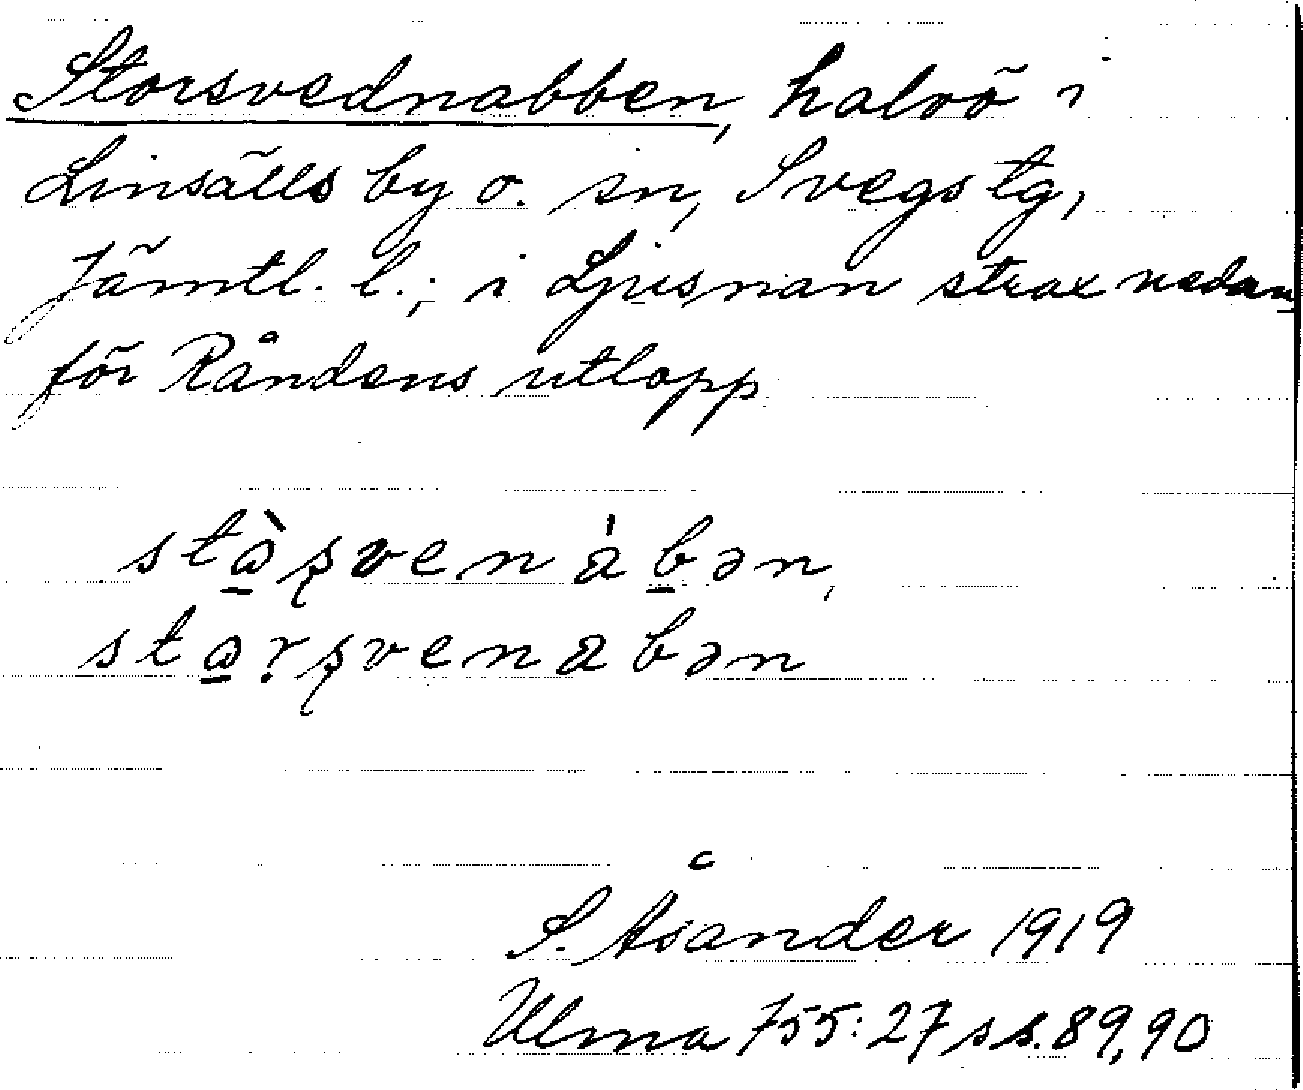 Storsvednabben, halvö i
Linsälls by o. sn, Svegs tg,
Jämtl. l.; i Ljusnan strax nedan
för Råndens utlopp
stàʂvenábən,
starʂvenabən
S. Åsander 1919
Ulma 755:27 s s. 89,90